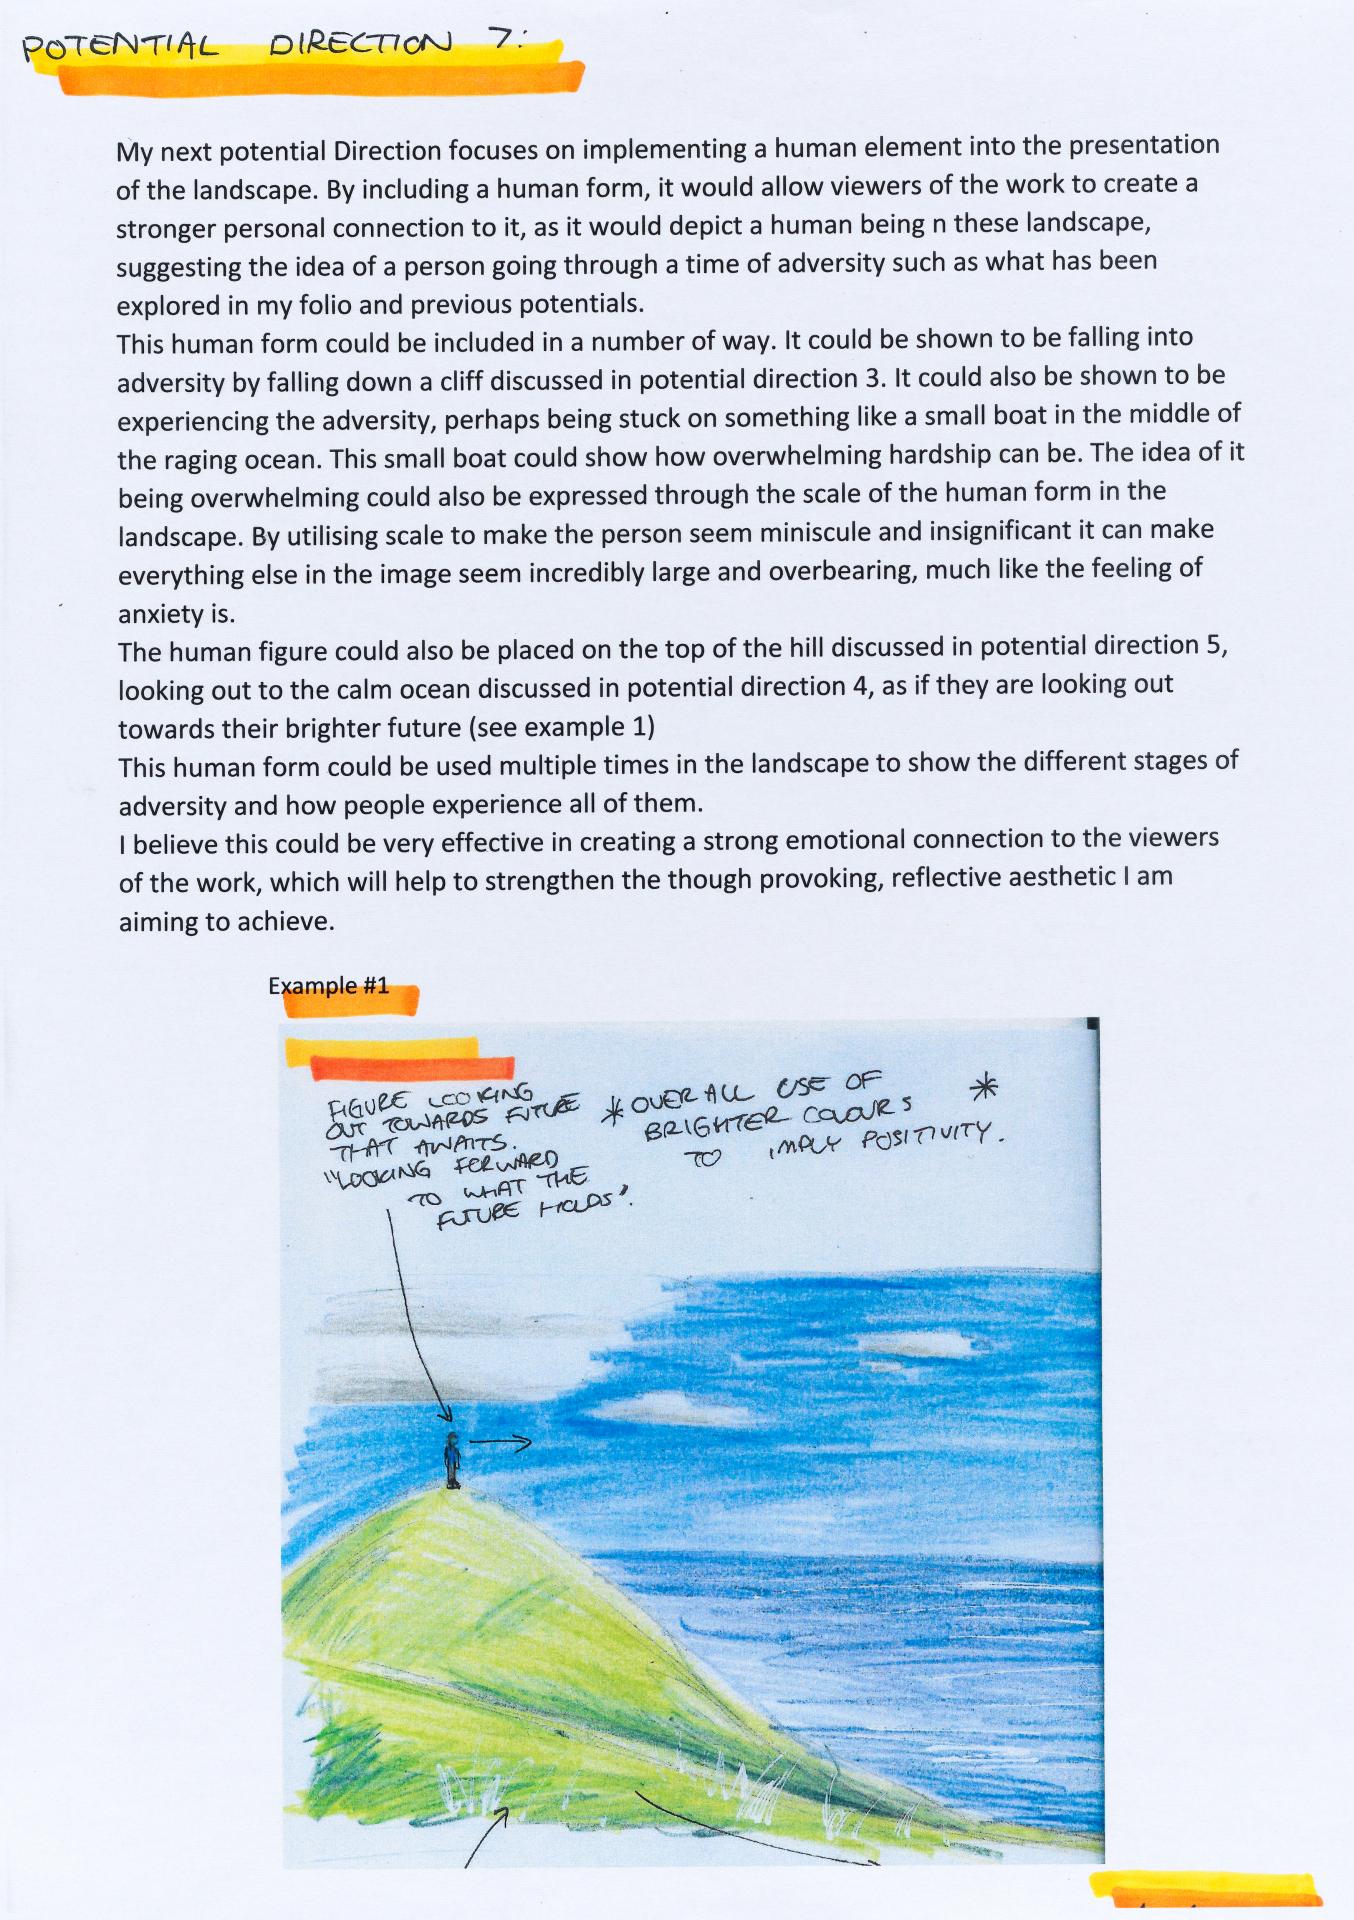 POTENTIAL DIRECTION 7:
My next potential Direction focuses on implementing a human element into the presentation
of the landscape. By including a human form, it would allow viewers of the work to create a
stronger personal connection to it, as it would depict a human being n these landscape,
suggesting the idea of a person going through a time of adversity such as what has been
explored in my folio and previous potentials.
This human form could be included in a number of way. It could be shown to be falling into
adversity by falling down a cliff discussed in potential direction 3. It could also be shown to be
experiencing the adversity, perhaps being stuck on something like a small boat in the middle of
the raging ocean. This small boat could show how overwhelming hardship can be. The idea of it
being overwhelming could also be expressed through the scale of the human form in the
landscape. By utilising scale to make the person seem miniscule and insignificant it can make
everything else in the image seem incredibly large and overbearing, much like the feeling of
anxiety is.
The human figure could also be placed on the top of the hill discussed in potential direction 5,
looking out to the calm ocean discussed in potential direction 4, as if they are looking out
towards their brighter future (see example 1)
This human form could be used multiple times in the landscape to show the different stages of
adversity and how people experience all of them.
I believe this could be very effective in creating a strong emotional connection to the viewers
of the work, which will help to strengthen the though provoking, reflective aesthetic I am
aiming to achieve.
Example #1
FIGURE LOOKING
OUT TOWARDS FUTURE
THAT AWAITS.
"LOOKING FORWARD
TO WHAT THE
FUTURE HOLDS".
* OVERALL USE OF *
BRIGHTER COLOURS
TO IMPLY POSITIVITY.